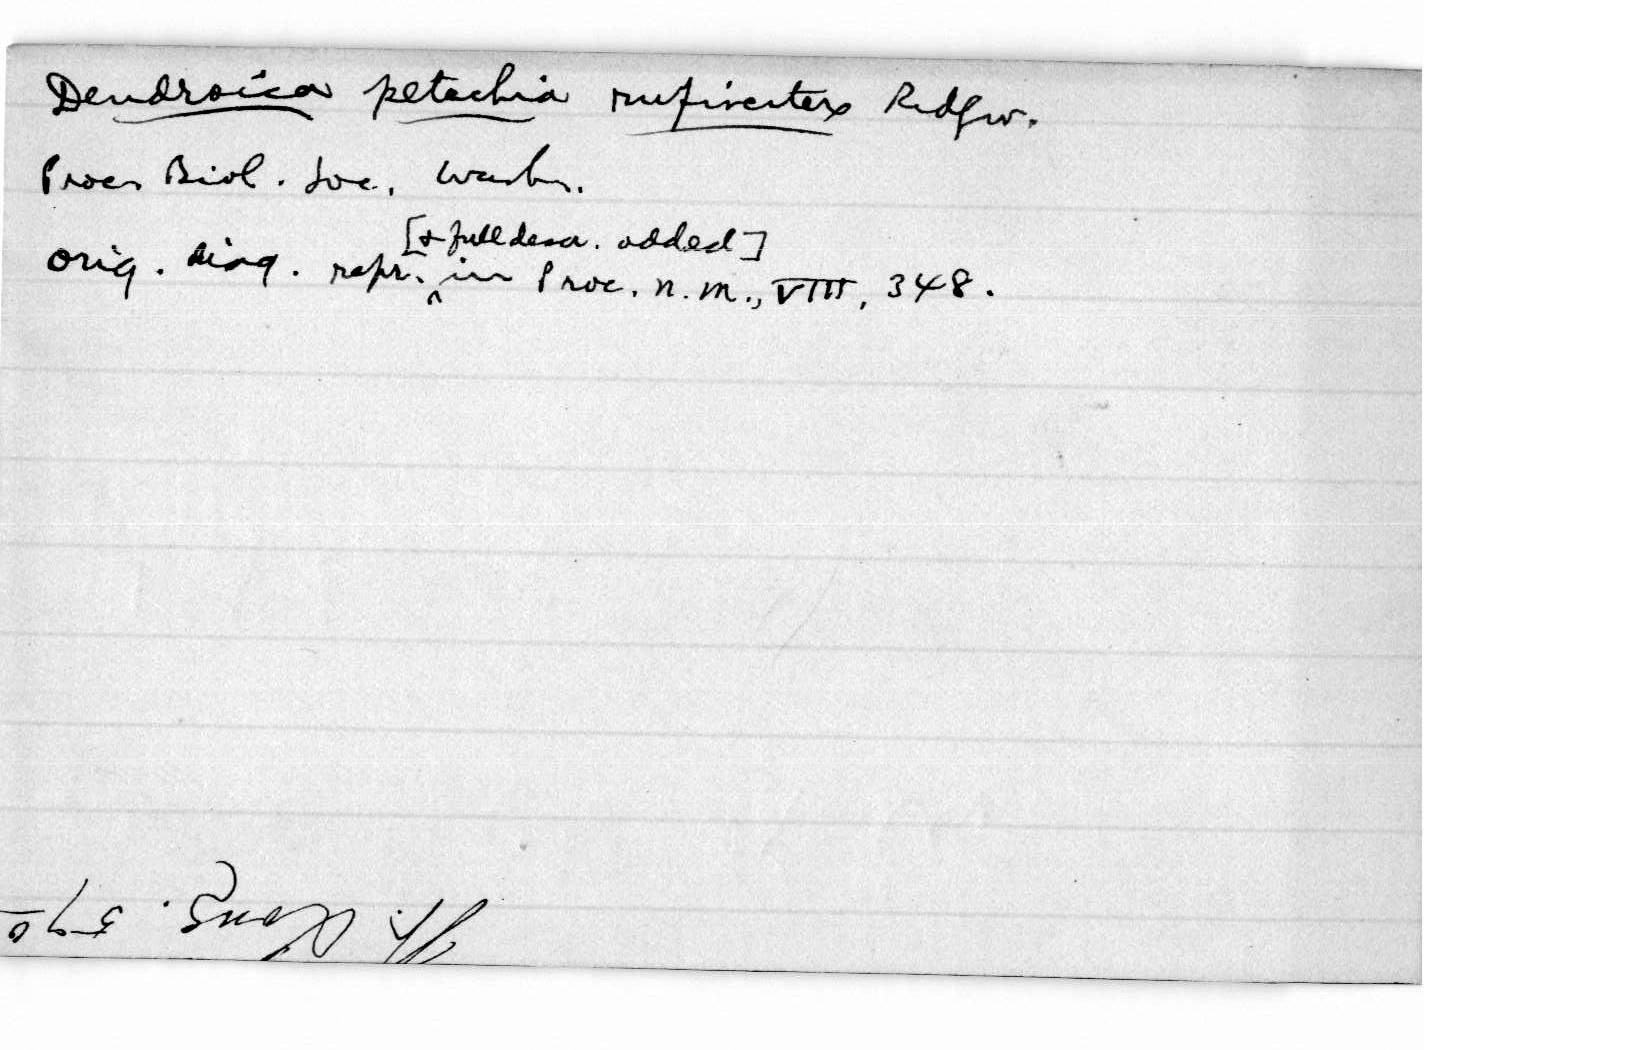 Dendroica petechia rufivertex Ridgw.
Proc. Biol. Soc. Wash.
orig. diag. repr. [& full descr. added] in Proc. N. M., VIII, 348.